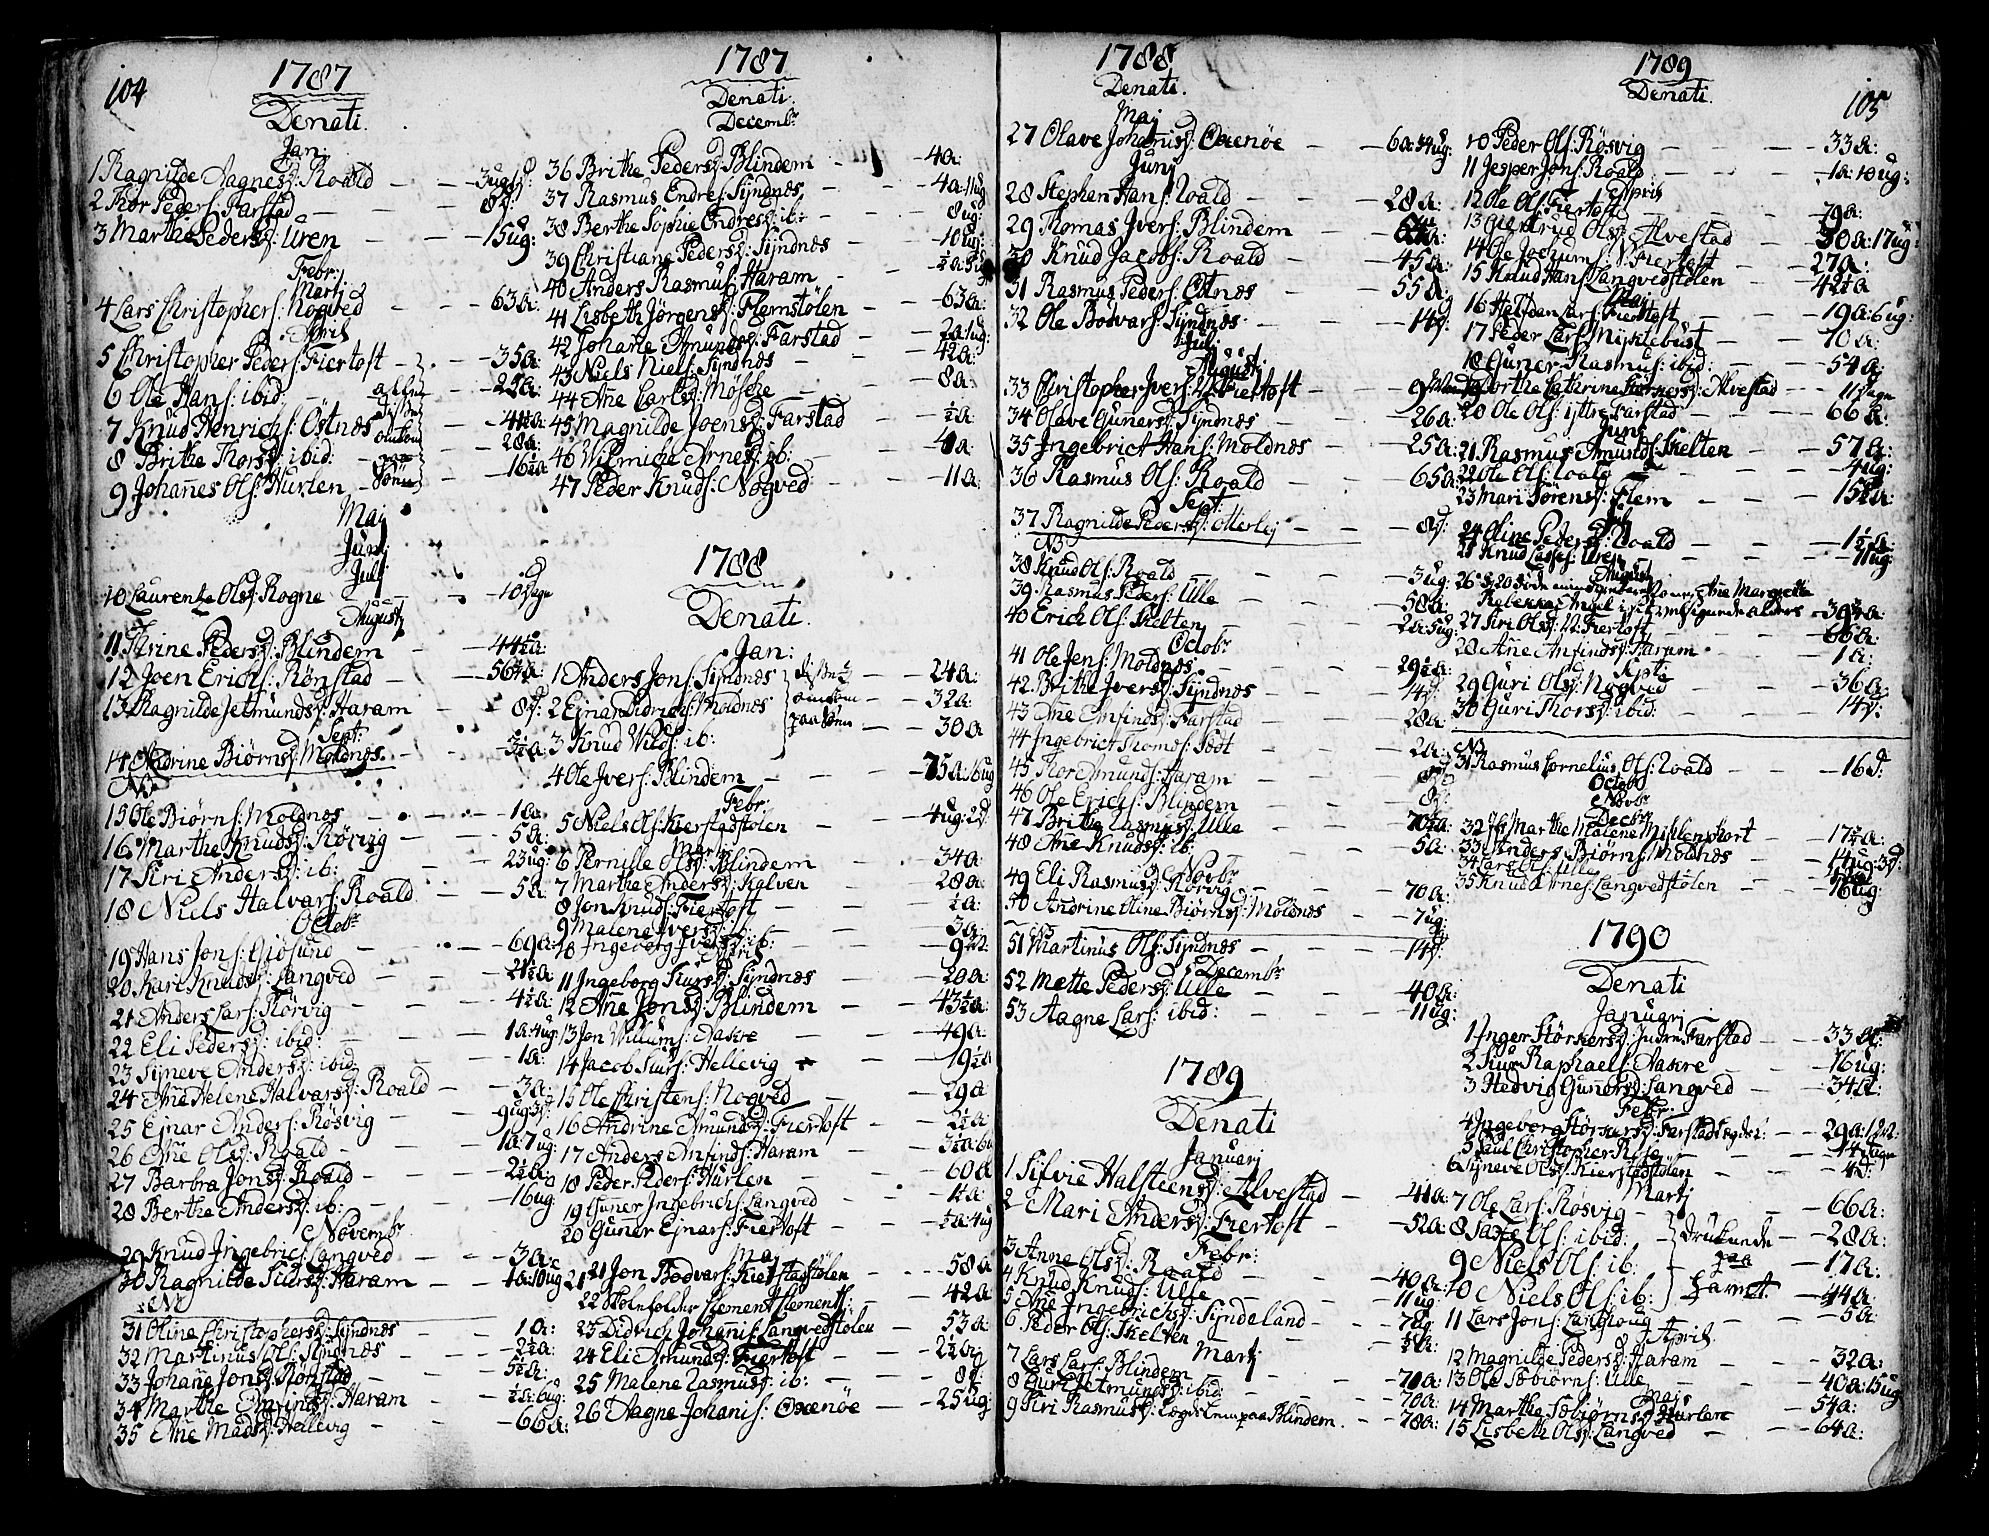 104
1787
Denati.
Jan:
1 Ragnilde Aagnesd: Roald — 3 ug:
2 Thor Peders: Farstad — 8 d:
3 Marthe Pedersd: Uren — 15 ug:
Febr:
Martj
4 Lars Christophers: Nogved — 63 a:
April
5 Christopher Peders: Fiertoft — 35 a:
6 Ole Hans: ibid: — 25 a:
7 Knud Henrichs: Östnæs
8 Brithe Thorsd: ibid: — 20 a:
9 Johañes Ols: Hurlen — 16½ a:
alle disse omkom paa Söen
Maj
Junj
Julj
10 Laurentze Olsd: Rogne — 10 Dage
Augustj
11 Thrine Pedersd: Blindem — 44½ a:
12 Joen Erichs: Rönstad — 56½ a:
13 Ragnilde Jetmundsd: Haram — 8 d:
Sept:
14 Andrine Biörnsd: Moldnæs — 3½ a:
NB
15 Ole Biörns: Moldnæs — 10 a:
16 Marthe Knudsd: Rörvig — 5 a:
17 Siri Andersd: ib: — 23 ug:
18 Niels Halvars: Roald — 5 a:
Octobr
19 Hans Jons: Giösund — 69 a:
20 Kari Knudsd: Langved — 21½ a:
21 Anders Lars: Rörvig — 4½ a:
22 Eli Pedersd: ibid: — 1 a: 4 ug:
23 Syneve Andersd: ibid — 1 a:
24 Añe Helene Halvarsd: Roald — 3 a:
25 Ejnar Anders: Rösvig — 9 ug: 3 d:
26 Añe Olsd: Roald — 1 a: 7 ug:
27 Barbra Jonsd: Roald — 2½ a:
28 Berthe Andersd: ib: — 16 ug:
Novembr
29 Knud Ingebric: Langved — 3 a:
30 Ragnilde Siursd: Haram — 1 a: 10 ug
NB
31 Oline Christophersd: Syndnæs — 1 a:
32 Martinus Ols: Syndnæs — 2½ a:
33 Johañe Jonsd: Rönstad — 5½ a:
34 Marthe Elarindsd: Haram — ½ a: 6 ug:
35 Añe Madsd: Hellevig — 66 a:
1787
Denati.
Decembr
36 Brithe Pedersd: Blindem — 4 a:
37 Rasmus Endres: Syndnæs — 4 a: 11 ug
38 Berthe Sophie Endresd: ib: — 8 ug:
39 Christiane Pedersd: Syndnæs — 10 ug:
40 Anders Rasmus: Haram
41 Lisbeth Jörgensd: Flemstölen — 63 a:
42 Johañe Amundsd: Farstad — 2 a: 1 ug:
43 Niels Niels: Syndnæs — 42 a:
44 Añe Carlsd: Möche — 8 a:
45 Magnilde Joensd: Farstad — ½ a:
46 Wilmiche Arnesd: ib: — 4 a:
47 Peder Knuds: Nogved — 11 a:
1788
Denati.
Jan:
1 Anders Jons: Syndnæs — 24 a:
2 Ejnar Didrichs: Moldnæs — 32 a:
3 Knud Nilds: ib: — 30 a:
disse omkom paa Söen
4 Ole Ivers: Blindem — 75 a: 16 ug
Febr:
5 Niels Ols: Kierstadstölen — 4 ug: 2 d:
Martj
6 Pernille Olsd: Blindem — 34 a:
7 Marthe Andersd: Kalven — 28 a:
8 Jon Knuds: Fiertoft — ½ a:
9 Malene Iversd: ib: — 3 a:
10 Ingeborg Iversd: ib:
April
11 Ingeborg Siursd: Syndnæs — 20 a:
12 Añe Jonsd: Blindem — 43½ a:
13 Jon Willums: Aakre — 49 a:
14 Jacob Siurs: Hellevig — 19½ a
15 Ole Christens: Nogved — 29 a:
16 Andrine Amundsd: Fiertoft — 2½ a:
17 Anders Anfinds: Haram
18 Peder Peders: Hurlen — 60 a
19 Guñer Ingebrichs: Langved
20 Guñor Ejnars: Fiertoft — ½ a: 4 ug
Maj
21 Jon Bodvars: Kierstadstölen — 58 a:
22 Skoleholder Clement Clements: — 42 a
23 Didrich Johañis: Langvedstölen — 53 a:
24 Eli Amundsd: Fiertoft
25 Malene Rasmusd: ib: — 8 d:
26 Aagne Johanis: Oxenöe — 25 ug
1788
Denati.
Maj
27 Olave Johañisd: Oxenöe — 6 a: 34 ug:
Junj
28 Stephen Hans: Roald — 28 a:
29 Thomas Ivers: Blindem
30 Knud Jacobs: Roald — 45 a:
31 Rasmus Peders: Östnæs — 55 a:
32 Ole Bodvars: Syndnæs — 14 d:
Julj
Augustj
33 Christopher Ivers: N: Fiertoft
34 Olave Gunersd: Syndnæs — 26 a:
35 Ingebrict Hans: Moldnæs — 25 a:
36 Rasmus Ols: Roald — 65 a:
Sept:
37 Ragnilde Pedersd: Otterlej — 8 d:
NB
38 Knud Ols: Roald — 3 ug:
39 Rasmus Peders: Ulle — 58 a:
40 Erich Ols: Skelten — 2 a: 5 ug:
Octobr
41 Ole Jens: Moldnæs — 29½ a:
42 Brithe Iversd: Syndnæs — 14 d:
43 Añe Anfindsd: Farstad — 28 a:
44 Ingebrict Thomes: Södt — 2 a:
45 Thor Amunds: Haram — 8 d:
46 Ole Erichs: Blindem — 8 d:
47 Brithe Rasmusd: Ulle — 70½ a:
48 Añe Knudsd: ib: — 5 a:
Novbr
49 Eli Rasmusd: Rörvig — 70 a:
50 Andrine Oline Biörnsd: Moldnæs — 7 ug:
NB
51 Martinus Ols: Syndnæs — 14 d:
Decembr
52 Mette Pedersd: Ulle — 40 a:
53 Aagne Lars: ibid: — 11 ug:
1789
Denati
Januarj
1 Silvie Halsteensd: Alvestad — 41 a:
2 Mari Andersd: Fiertoft — 52 a:
Febr:
3 Anne Olsd: Roald — 40 a:
4 Knud Knuds: Ulle — 11 ug:
5 Añe Ingebrichsd: Syndeland — 7 ug:
6 Peder Ols: Skelten — ½ a:
Martj
7 Lars Lars: Blindem — 70 a:
8 Guri Jetmundsd: ibid: — 70 a:
9 Siri Rasmusd: Lægds Lem paa Blindem. — 78 a:
1789
Denati.
105
10 Peder Ols: Rösvig — 33 a:
11 Jesper Jons: Roald — 1 a: 10 ug:
April
12 Ole Ols: Fiertoft — 79 a:
13 Giertrud Olsd: Alvestad — 30 a: 17 ug:
14 Ole Jochums: N: Fiertoft — 27 a:
15 Knud Hans: Langvedstölen — 42½ a
Maj
16 Helfdan Lars: Fiertoft — 19 a: 6 ug:
17 Peder Lars: Mycklebust — 70 a:
18 Guner Rasmus: ibid: — 54 a:
19 Dorthe Cathrine Torgersd: Alvestad — 11 Dage
20 Ole Ols: yttre Farstad — 66 a:
Junj
21 Rasmus Amunds: Skelten — 57 a:
22 Ole Ols: Roald — 4 ug:
23 Mari Sörensd: Flem — 15½ a:
Julj
24 Oline Pedersd: Roald — 1½ a:
25 Knud Lasses: Uren — 11 ug:
Augustj
26 d: 20 döde min Svigerinde Añe Margrethe
Rebekka Angel i sit alder — 39½ a:
27 Siri Olsd: N: Fiertoft — 66 a:
28 Añe Anfindsd: Haram — 1 a:
Sept:
29 Guri Olsd: Nogved — 36 a:
30 Guri Thorsd: ibid: — 14 d:
NB
31 Rasmus Cornelius Ols: Roald — 16 d.
Octobr
Novbr
Decbr
32 Marthe Malene Myhlenphort — 17½ a:
33 Anders Biörns: Moldnæs — 14 ug: 3 d:
34 Lars Ols: Ulle
35 Knud Arnes: Langvedstölen — 16 ug:
1790
Denati
Januarj
1 Inger Störkersd: Indre Farstad — 33 a:
2 Siur Raphaels: Aakre — 16 ug:
3 Hedvig Gunersd: Langved — 34 a:
Febr:
4 Ingeborg Störkersd: Farstad — 29 a:
5 Paul Christopher — 14 Dage
6 Syneve Olsd: Kierstadstölen — 4 d:
Martj
7 Ole Lars: Rösvig — 66 a:
8 Saxe Ols: ibid: — 28 a:
9 Niels Ols: ib: — 17 a:
10 Niels Ols: ib: — 44 a:
Drukende paa Farvet
11 Lars Jons: Longvoug — 5 a:
April
12 Magnilde Pedersd: Haram — 32 a:
13 Ole Sæbiörns: Ulle — 40 a: 15 ug
Majs
14 Marthe Sæbiörnsd: Hurlen — 54 a:
15 Lisbeth Olsd: Langved — 64 a: